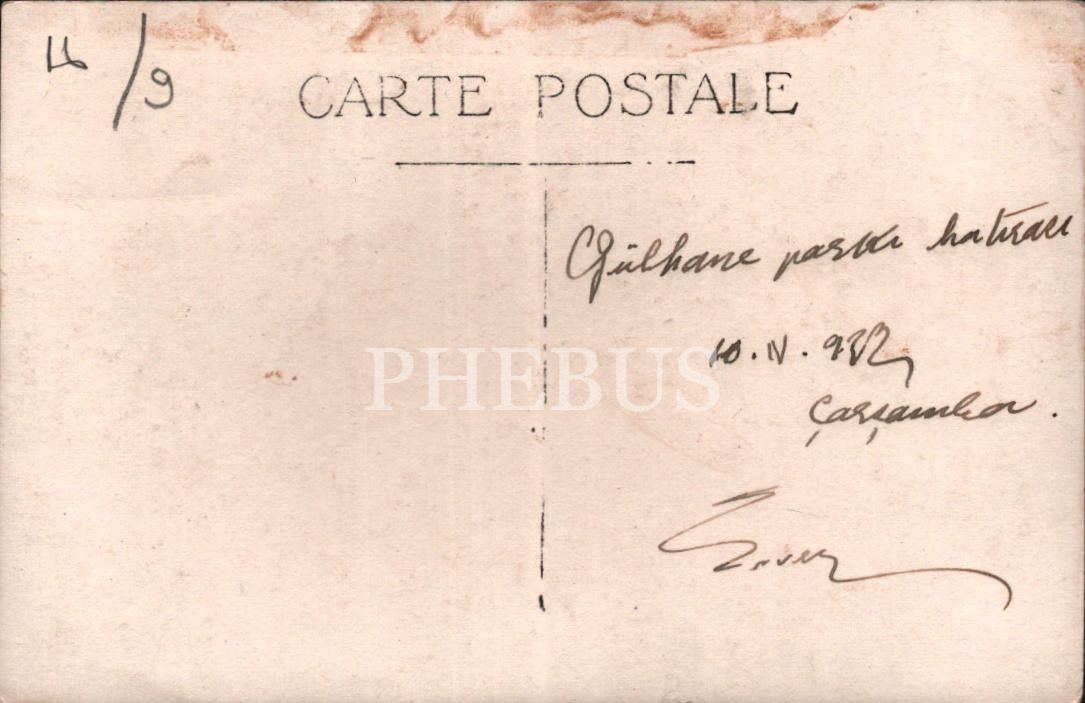 CARTE POSTALE
Gülhane parkı hatırası
10. IV. 932
Çarşamba.
PHEBUS